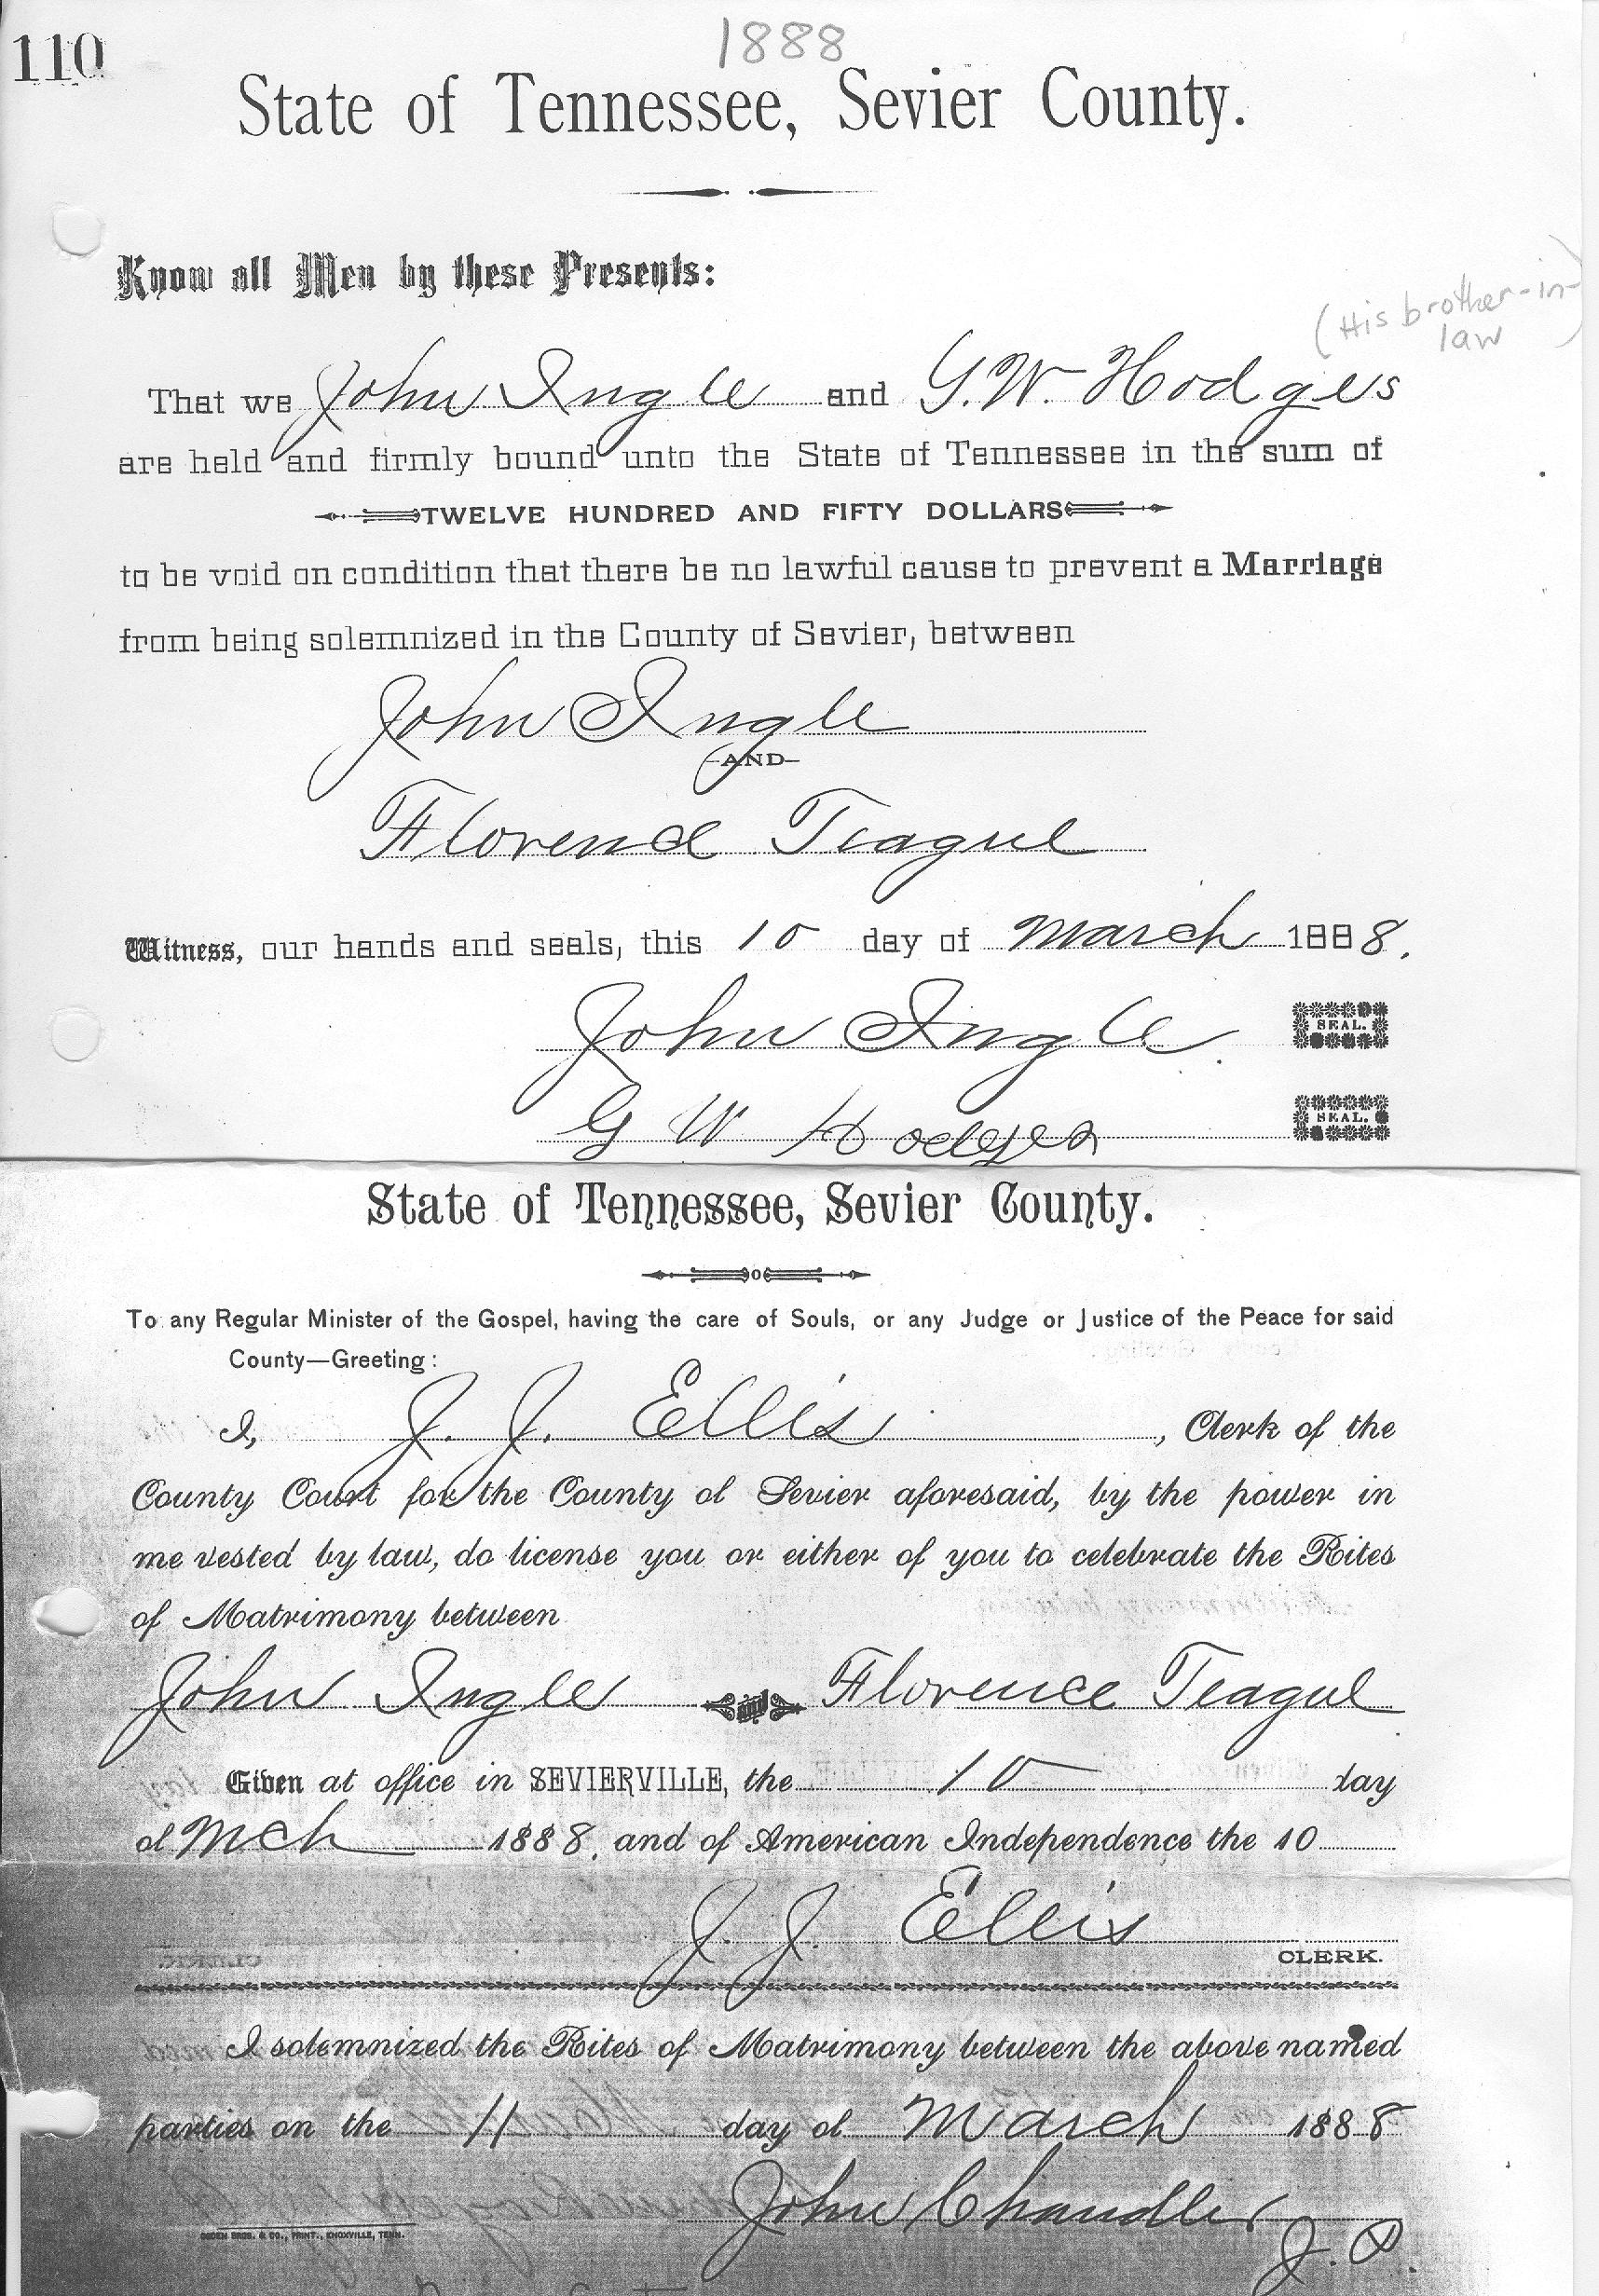 110
1888
State of Tennessee, Sevier County.
Know all Men by these Presents:
(His brother-in-
law)
That we John Ingle and G.W. Hodges
are held and firmly bound unto the State of Tennessee in the sum of
TWELVE HUNDRED AND FIFTY DOLLARS
to be void on condition that there be no lawful cause to prevent a Marriage
from being solemnized in the County of Sevier, between
John Ingle
-AND-
Florence Teague
Witness, our hands and seals, this 10 day of March 1888.
John Ingle SEAL.
G W Hodges SEAL.
State of Tennessee, Sevier County.
To any Regular Minister of the Gospel, having the care of Souls, or any Judge or Justice of the Peace for said
County—Greeting:
I, J. J. Ellis, Clerk of the
County Court for the County of Sevier aforesaid, by the power in
me vested by law, do license you or either of you to celebrate the Rites
of Matrimony between
John Ingle and Florence Teague
Given at office in SEVIERVILLE, the 10 day
of Mch 1888, and of American Independence the 10
J. J. Ellis
CLERK.
I solemnized the Rites of Matrimony between the above named
parties on the 11 day of March 1888
John Chandler
J. P.
OGDEN BROS. & CO., PRINT., KNOXVILLE, TENN.